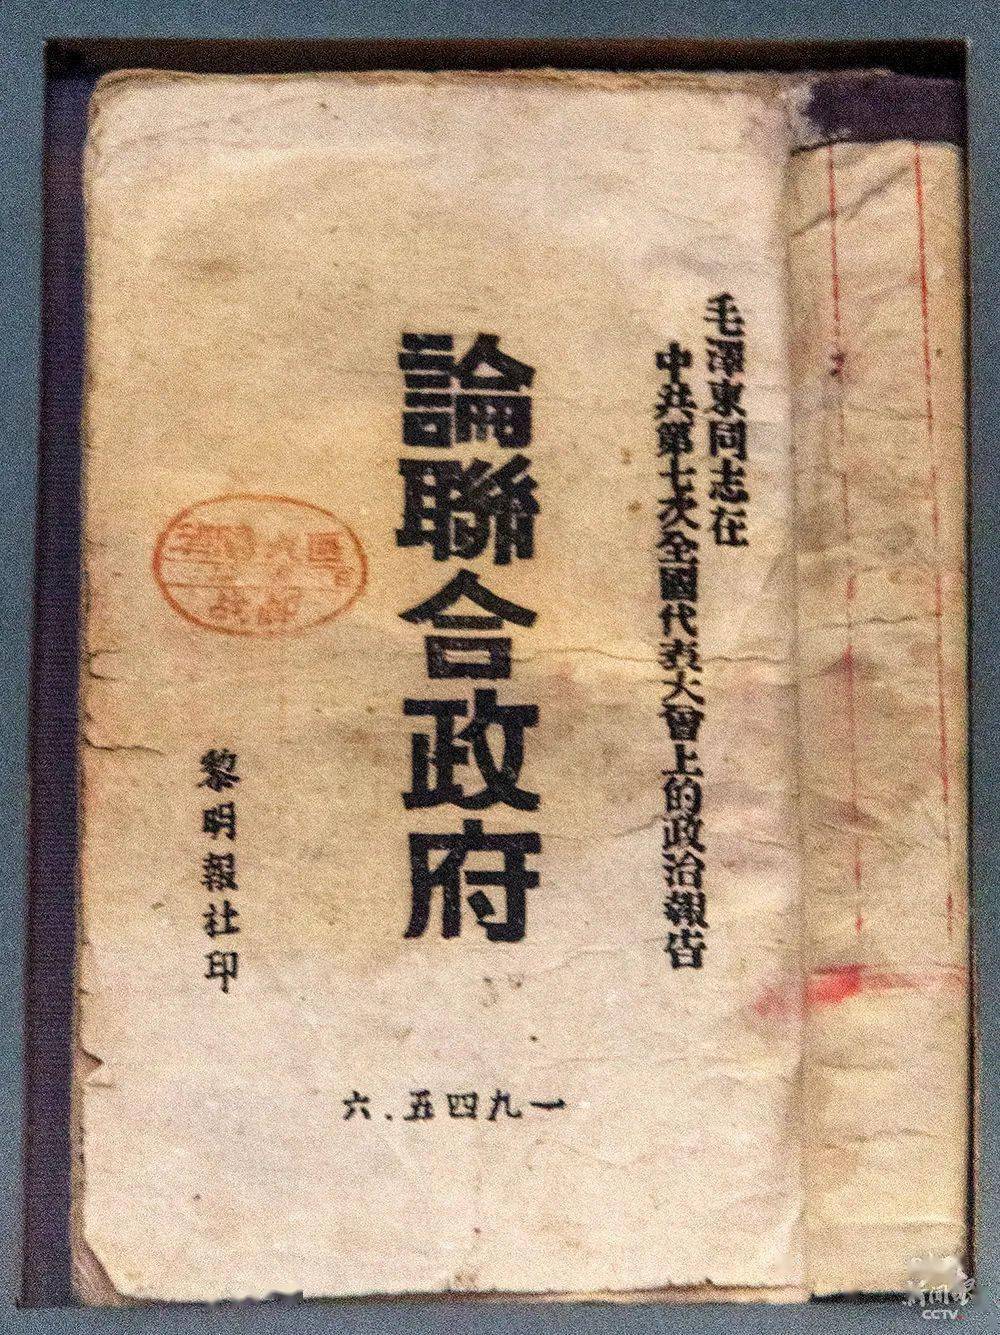 毛澤東同志在
中共第七次全國代表大會上的政治報告
論聯合政府
黎明報社印
一九四五.六
新闻眼
CCTV